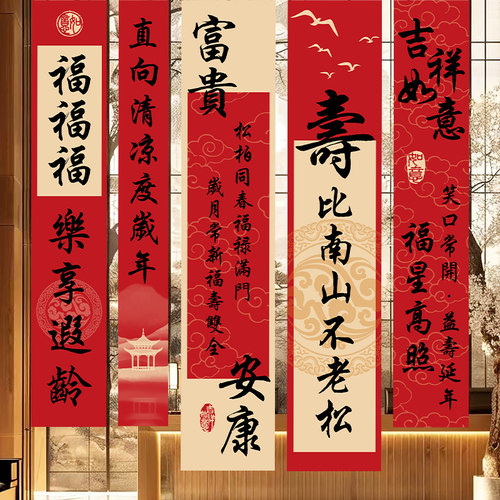 福福福
樂享遐齡
直向清凉度歲年
富貴
松柏同春福禄滿門
歲月常新福壽雙全
安康
壽比南山不老松
吉祥如意
如意
笑口常開·益壽延年
福星高照